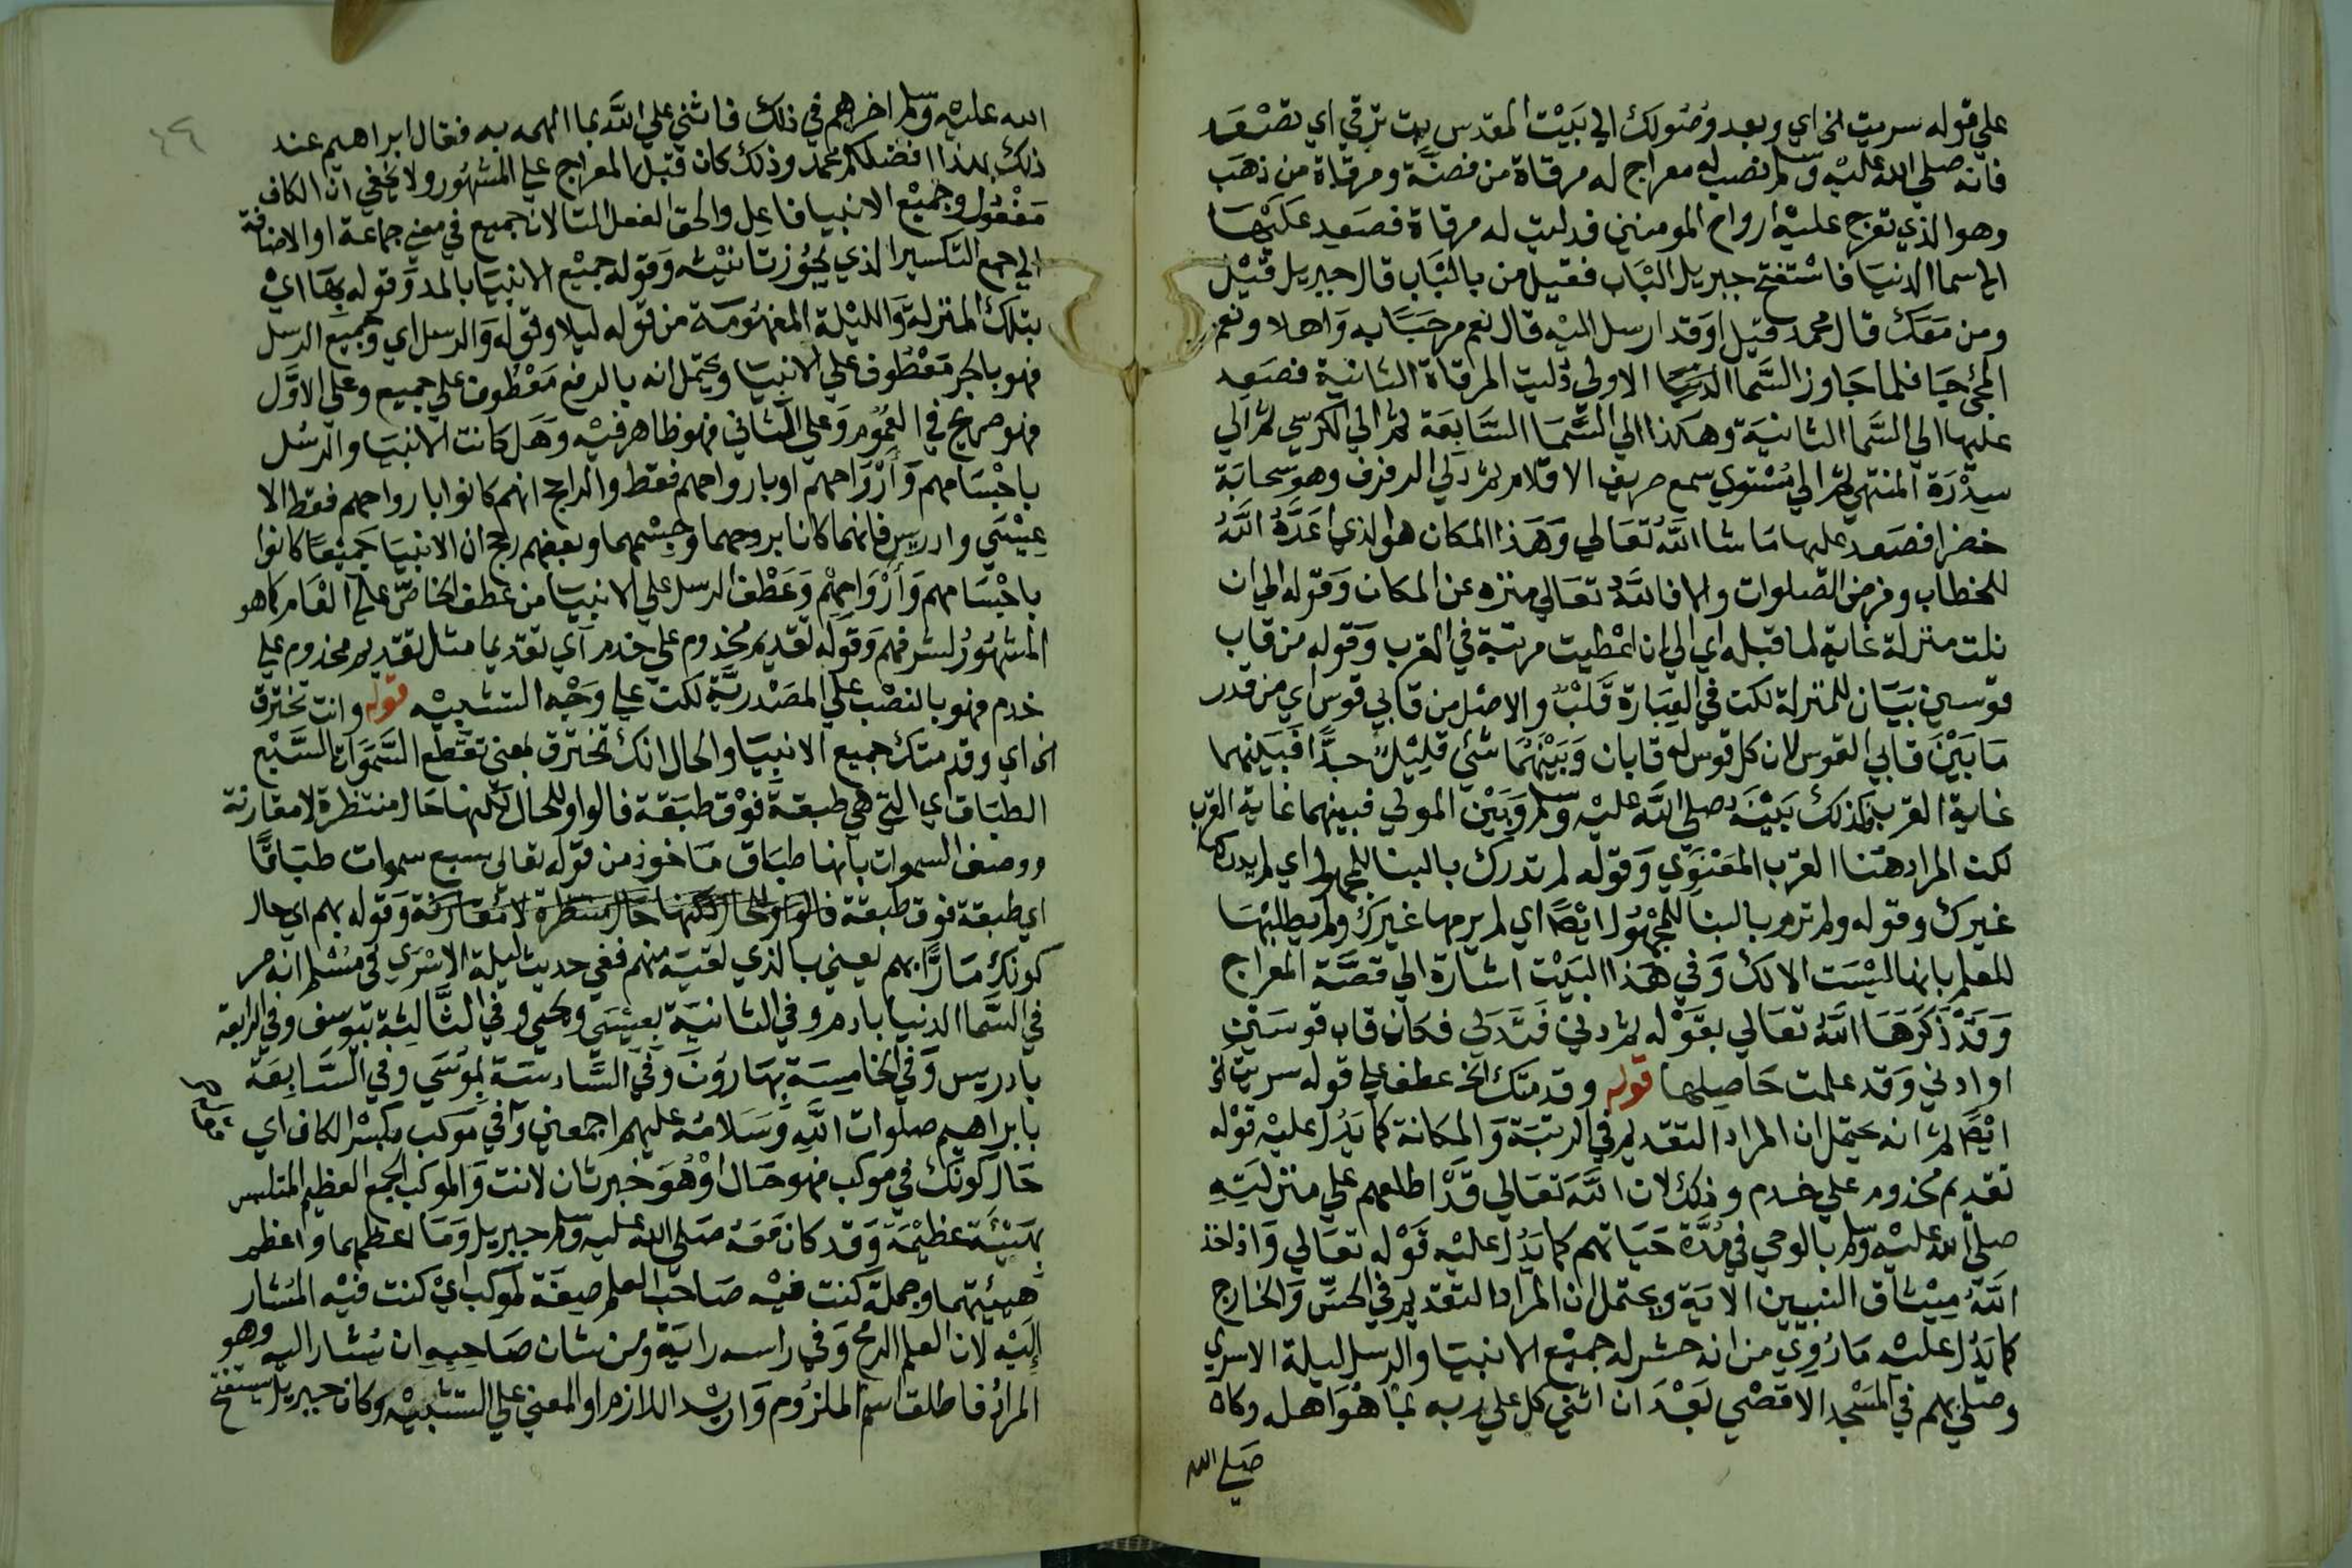 علي قوله سريت الخ اي وبعد وصولك الي بيت المقدس بت ترقي اي تصعد
فانه صلي الله عليه وسلم نصب له معراج له مرقاة من فضة ومرقاة من ذهب
وهو الذي تعرج عليه ارواح المومنين فدليت له مرقاة فصعد عليها
الي سما الدنيا فاستفتح جبريل الباب فقيل من بالباب قال جبريل قيل
ومن معك قال محمد قيل اوقد ارسل اليه قال نعم مرحبا به واهلا ونعم
المجئ جا فلما جاوز السما الدنيا الاولي دليت المرقاة الثانية فصعد
عليها الي السما الثانية وهكذا الي السما السابعة ثم الي الكرسي ثم الي
سدرة المنتهي ثم الي مستوي سمع صريف الاقلام ثم دلي الرفرف وهو سحابة
خضرا فصعد عليها ما شا الله تعالي وهذا المكان هو الذي اعده الله
للخطاب وفرض الصلوات والا فالله تعالي منزه عن المكان وقوله الي ان
نلت منزلة غاية لما قبله اي الي ان اعطيت مرتبة في القرب وقوله من قاب
قوسين بيان للمنزلة لكن في العبارة قلب والاصل من قابي قوس اي من قدر
ما بين قابي القوس لان كل قوس له قابان وبينهما شئ قليل جدا فبينهما
غاية القرب فكذلك بينه صلي الله عليه وسلم وبين المولي فبينهما غاية القرب
لكن المراد هنا القرب المعنوي وقوله لم تدرك بالبنا للمجهول اي لم يدركها
غيرك وقوله ولم ترم بالبنا للمجهول ايضا اي لم يرمها غيرك ولم يطلبها
للعلم بانها ليست الا لك وفي هذا البيت اشارة الي قصة المعراج
وقد ذكرها الله تعالي بقوله ثم دني فتدلي فكان قاب قوسين
او ادني وقد علمت حاصلها قوله وقدمتك الخ عطف علي قوله سريت الخ
ايضا ثم انه يحتمل ان المراد التقديم في الرتبة والمكانة كما يدل عليه قوله
تقديم مخدوم علي خدم وذلك لان الله تعالي قد اطلعهم علي منزلته
صلي الله عليه وسلم بالوحي في مدة حياتهم كما يدل عليه قوله تعالي واذ اخذ
الله ميثاق النبيين الاية ويحتمل ان المراد التقديم في الحس والخارج
كما يدل عليه ما روي من انه حشر له جميع الانبيا والرسل ليلة الاسري
وصلي بهم في المسجد الاقصي بعد ان اثني كل علي ربه بما هو اهله وكان
صلي الله
الله عليه وسلم اخرهم في ذلك فاثني علي الله بما الهمه به فقال ابراهيم عند
ذلك بهذا افضلكم محمد وذلك كان قبل المعراج علي المشهور ولا يخفي ان الكاف
مفعول وجميع الانبيا فاعل والحق الفعل التا لان جميع في معني جماعة او الاضافة
الي جمع التكسير الذي يجوز تانيثه وقوله جميع الانبيا بالمد وقوله بها اي
بتلك المنزلة والليلة المفهومة من قوله ليلا وقوله والرسل اي وجميع الرسل
فهو بالجر معطوف علي الانبيا ويحتمل انه بالرفع معطوف علي جميع وعلي الاول
فهو صريح في العموم وعلي الثاني فهو ظاهر فيه وهل كانت الانبيا والرسل
باجسامهم وارواحهم او بارواحهم فقط والراجح انهم كانوا بارواحهم فقط الا
عيسي وادريس فانهما كانا بروحهما وجسمهما وبعضهم رجح ان الانبيا جميعا كانوا
باجسامهم وارواحهم وعطف الرسل علي الانبيا من عطف الخاص علي العام كما هو
المشهور لشرفهم وقوله تقديم مخدوم علي خدم اي تقديما مثل تقديم مخدوم علي
خدم فهو بالنصب علي المصدرية لكن علي وجه التشبيه قوله وانت تخترق
الخ اي وقدمتك جميع الانبيا والحال انك تخترق بمعني تقطع السموات السبع
الطباق اي التي هي طبقة فوق طبقة فالواو للحال لكنها حال منتظرة لا مقارنة
ووصف السموات بانها طباق ماخوذ من قوله تعالي سبع سموات طباقا
اي طبقة فوق طبقة فالواو للحال لكنها حال منتظرة لا مقارنة وقوله بهم اي حال
كونك مارا بهم يعني بالذي لقيته منهم ففي حديث ليلة الاسري في مسلم انه مر
في السما الدنيا بادم وفي الثانية بعيسي ويحيي وفي الثالثة بيوسف وفي الرابعة
بادريس وفي الخامسة بهارون وفي السادسة بموسي وفي السابعة
بابراهيم صلوات الله وسلامه عليهم اجمعين وفي موكب بكسر الكاف اي
حال كونك في موكب فهو حال او هو خبر ثان لانت والموكب الجمع العظيم المتلبس
بهيئة عظيمة وقد كان معه صلي الله عليه وسلم جبريل وما اعظمهما واعظم
هيئتهما وجملة كنت فيه صاحب العلم صفة لموكب اي كنت فيه المشار
اليه لان العلم الرمح وفي راسه راية ومن شان صاحبه ان يشار اليه وهو
المراد فاطلق اسم الملزوم واريد اللازم او المعني علي التشبيه وكان جبريل يستفتح